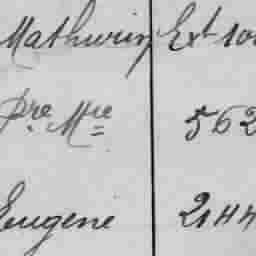 Mathurin Ext 10
Pre Mie 562
Eugène 2144